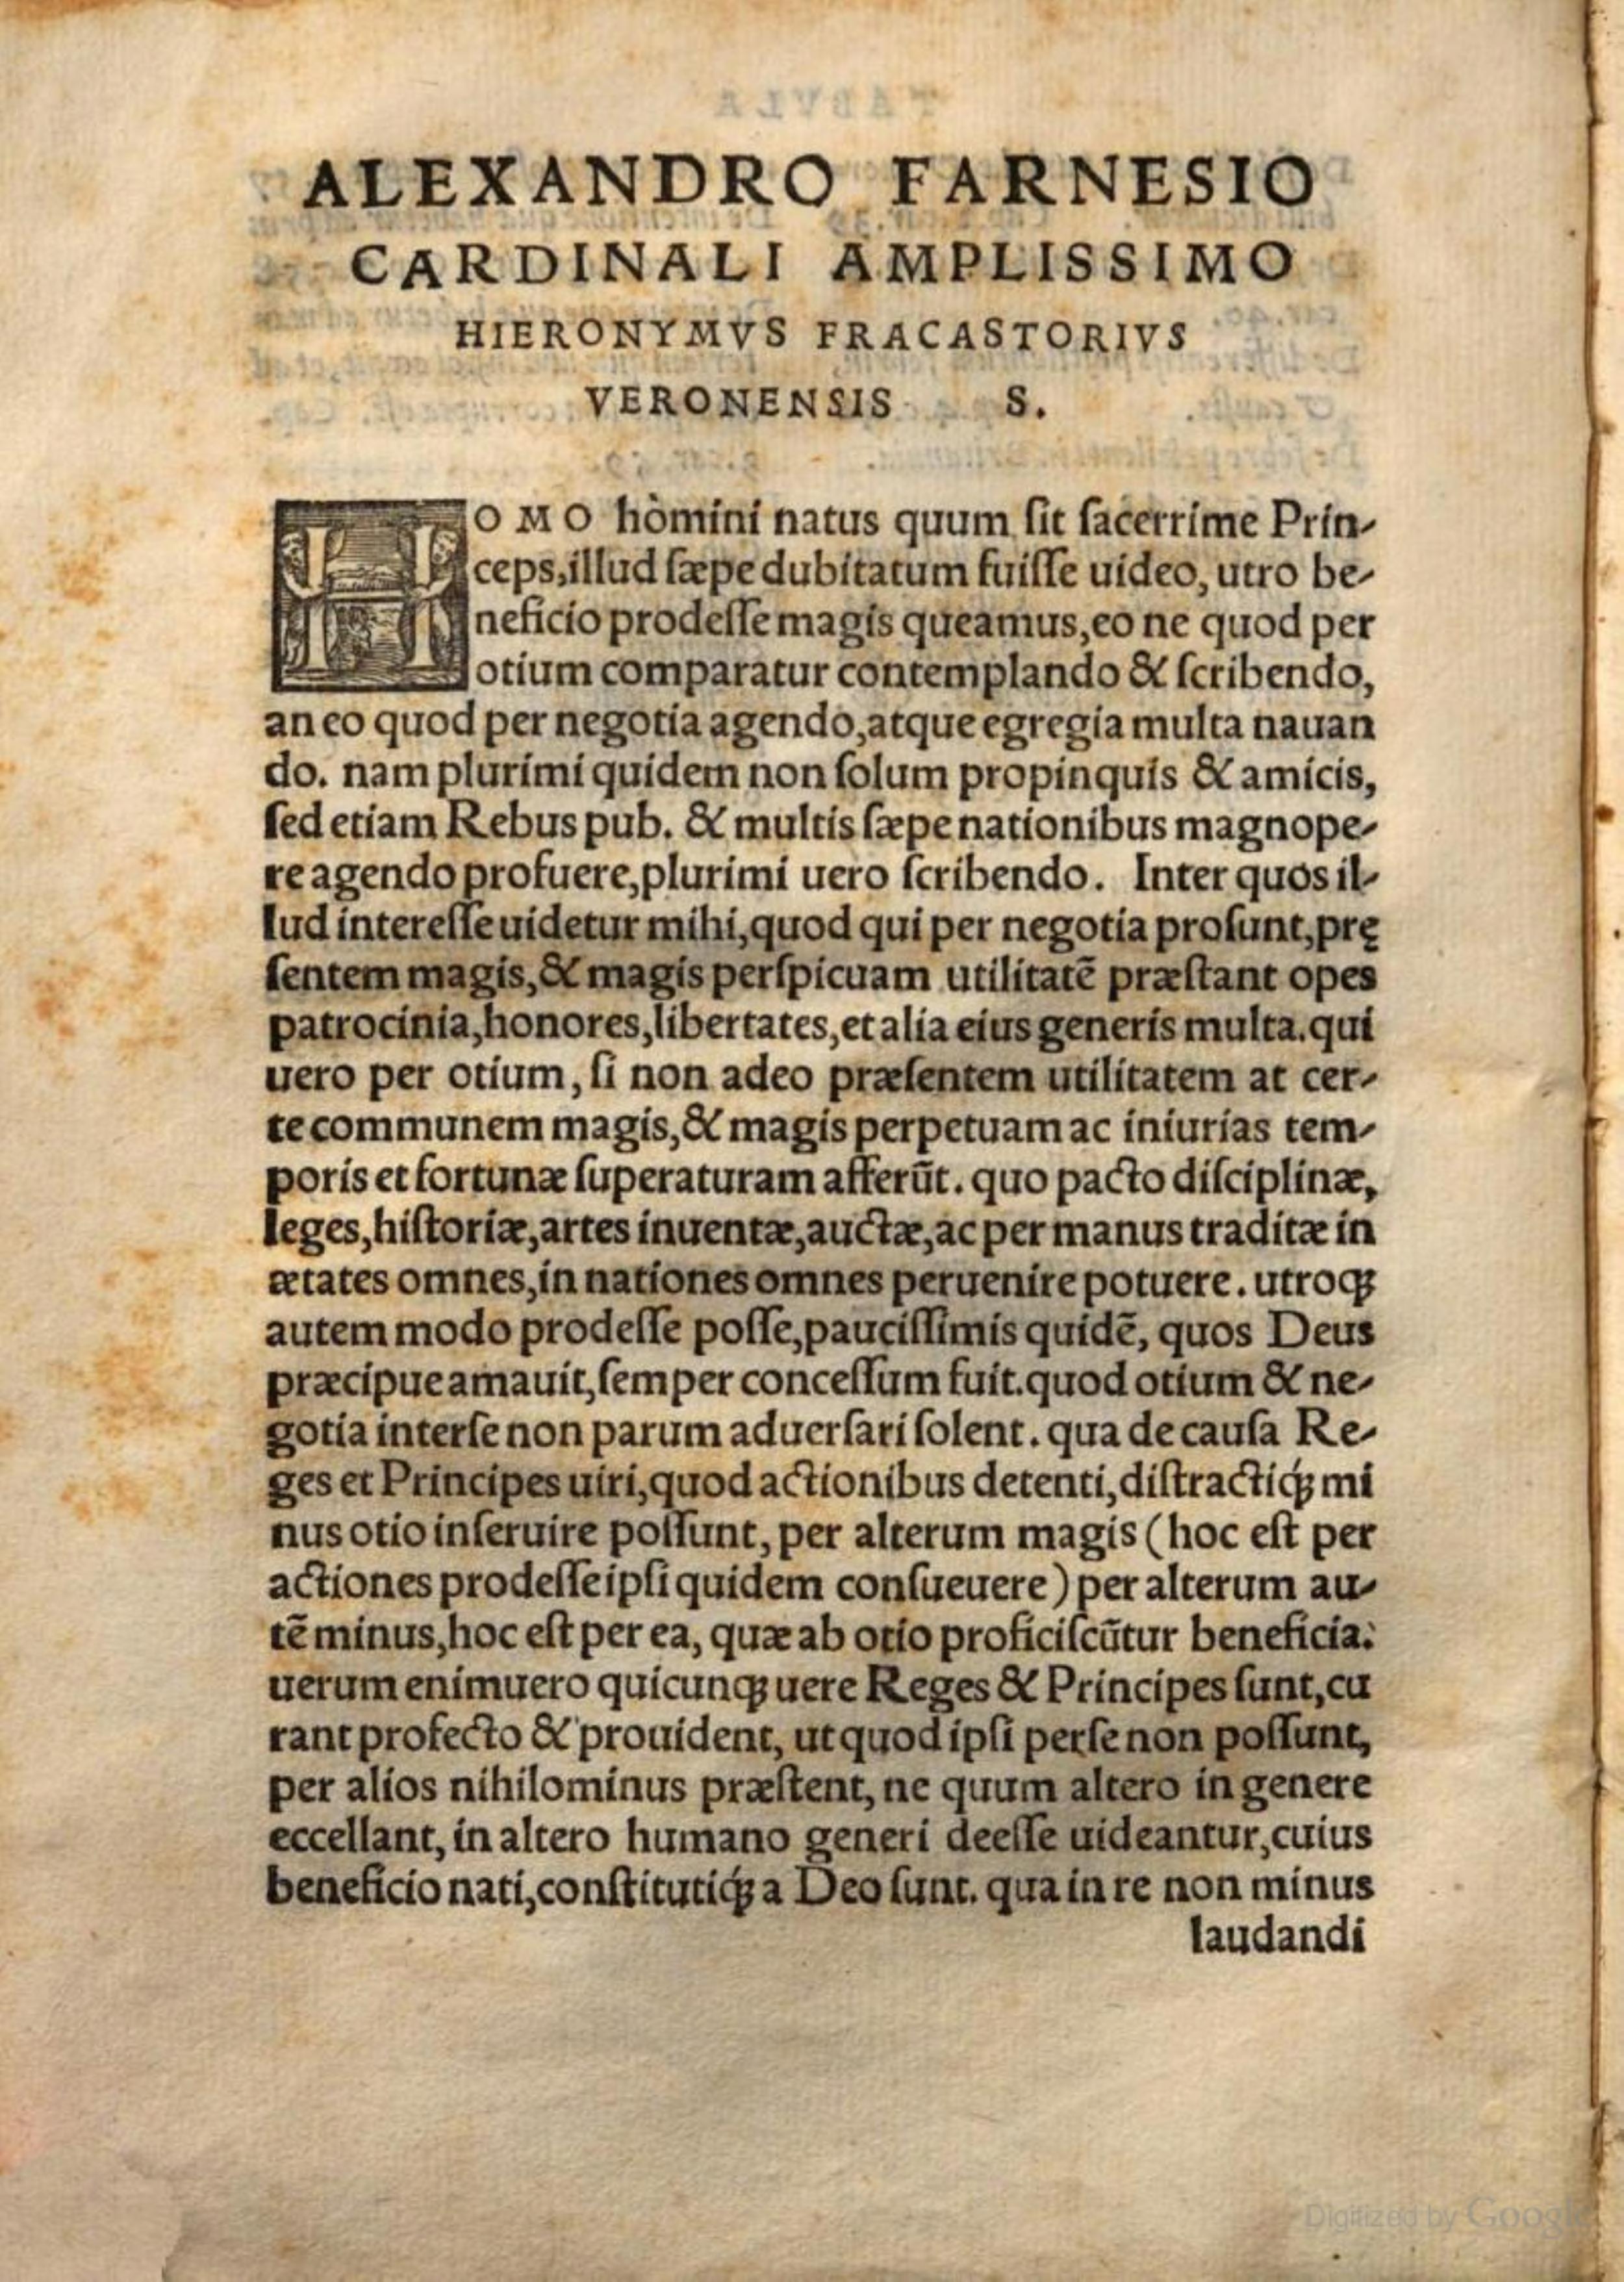 ALEXANDRO FARNESIO
CARDINALI AMPLISSIMO
HIERONYMVS FRACASTORIVS
VERONENSIS S.
HOMO homini natus quum sit sacerrime Prin-
ceps, illud sæpe dubitatum fuisse uideo, utro be-
neficio prodesse magis queamus, eo ne quod per
otium comparatur contemplando & scribendo,
an eo quod per negotia agendo, atque egregia multa nauan
do. nam plurimi quidem non solum propinquis & amicis,
sed etiam Rebus pub. & multis sæpe nationibus magnope-
re agendo profuere, plurimi uero scribendo. Inter quos il-
lud interesse uidetur mihi, quod qui per negotia prosunt, prę
sentem magis, & magis perspicuam utilitatē præstant opes
patrocinia, honores, libertates, et alia eius generis multa. qui
uero per otium, si non adeo præsentem utilitatem at cer-
te communem magis, & magis perpetuam ac iniurias tem-
poris et fortunæ superaturam afferūt. quo pacto disciplinæ,
leges, historiæ, artes inuentæ, auctæ, ac per manus traditæ in
ætates omnes, in nationes omnes peruenire potuere. utroqꝫ
autem modo prodesse posse, paucissimis quidē, quos Deus
præcipue amauit, semper concessum fuit. quod otium & ne-
gotia inter se non parum aduersari solent. qua de causa Re-
ges et Principes uiri, quod actionibus detenti, distractiq́ꝫ mi
nus otio inseruire possunt, per alterum magis (hoc est per
actiones prodesse ipsi quidem consueuere) per alterum au-
tē minus, hoc est per ea, quæ ab otio proficiscūtur beneficia:
uerum enimuero quicunqꝫ uere Reges & Principes sunt, cu
rant profecto & prouident, ut quod ipsi per se non possunt,
per alios nihilominus præstent, ne quum altero in genere
eccellant, in altero humano generi deesse uideantur, cuius
beneficio nati, constitutiq́ꝫ a Deo sunt. qua in re non minus
laudandi
Digitized by Google